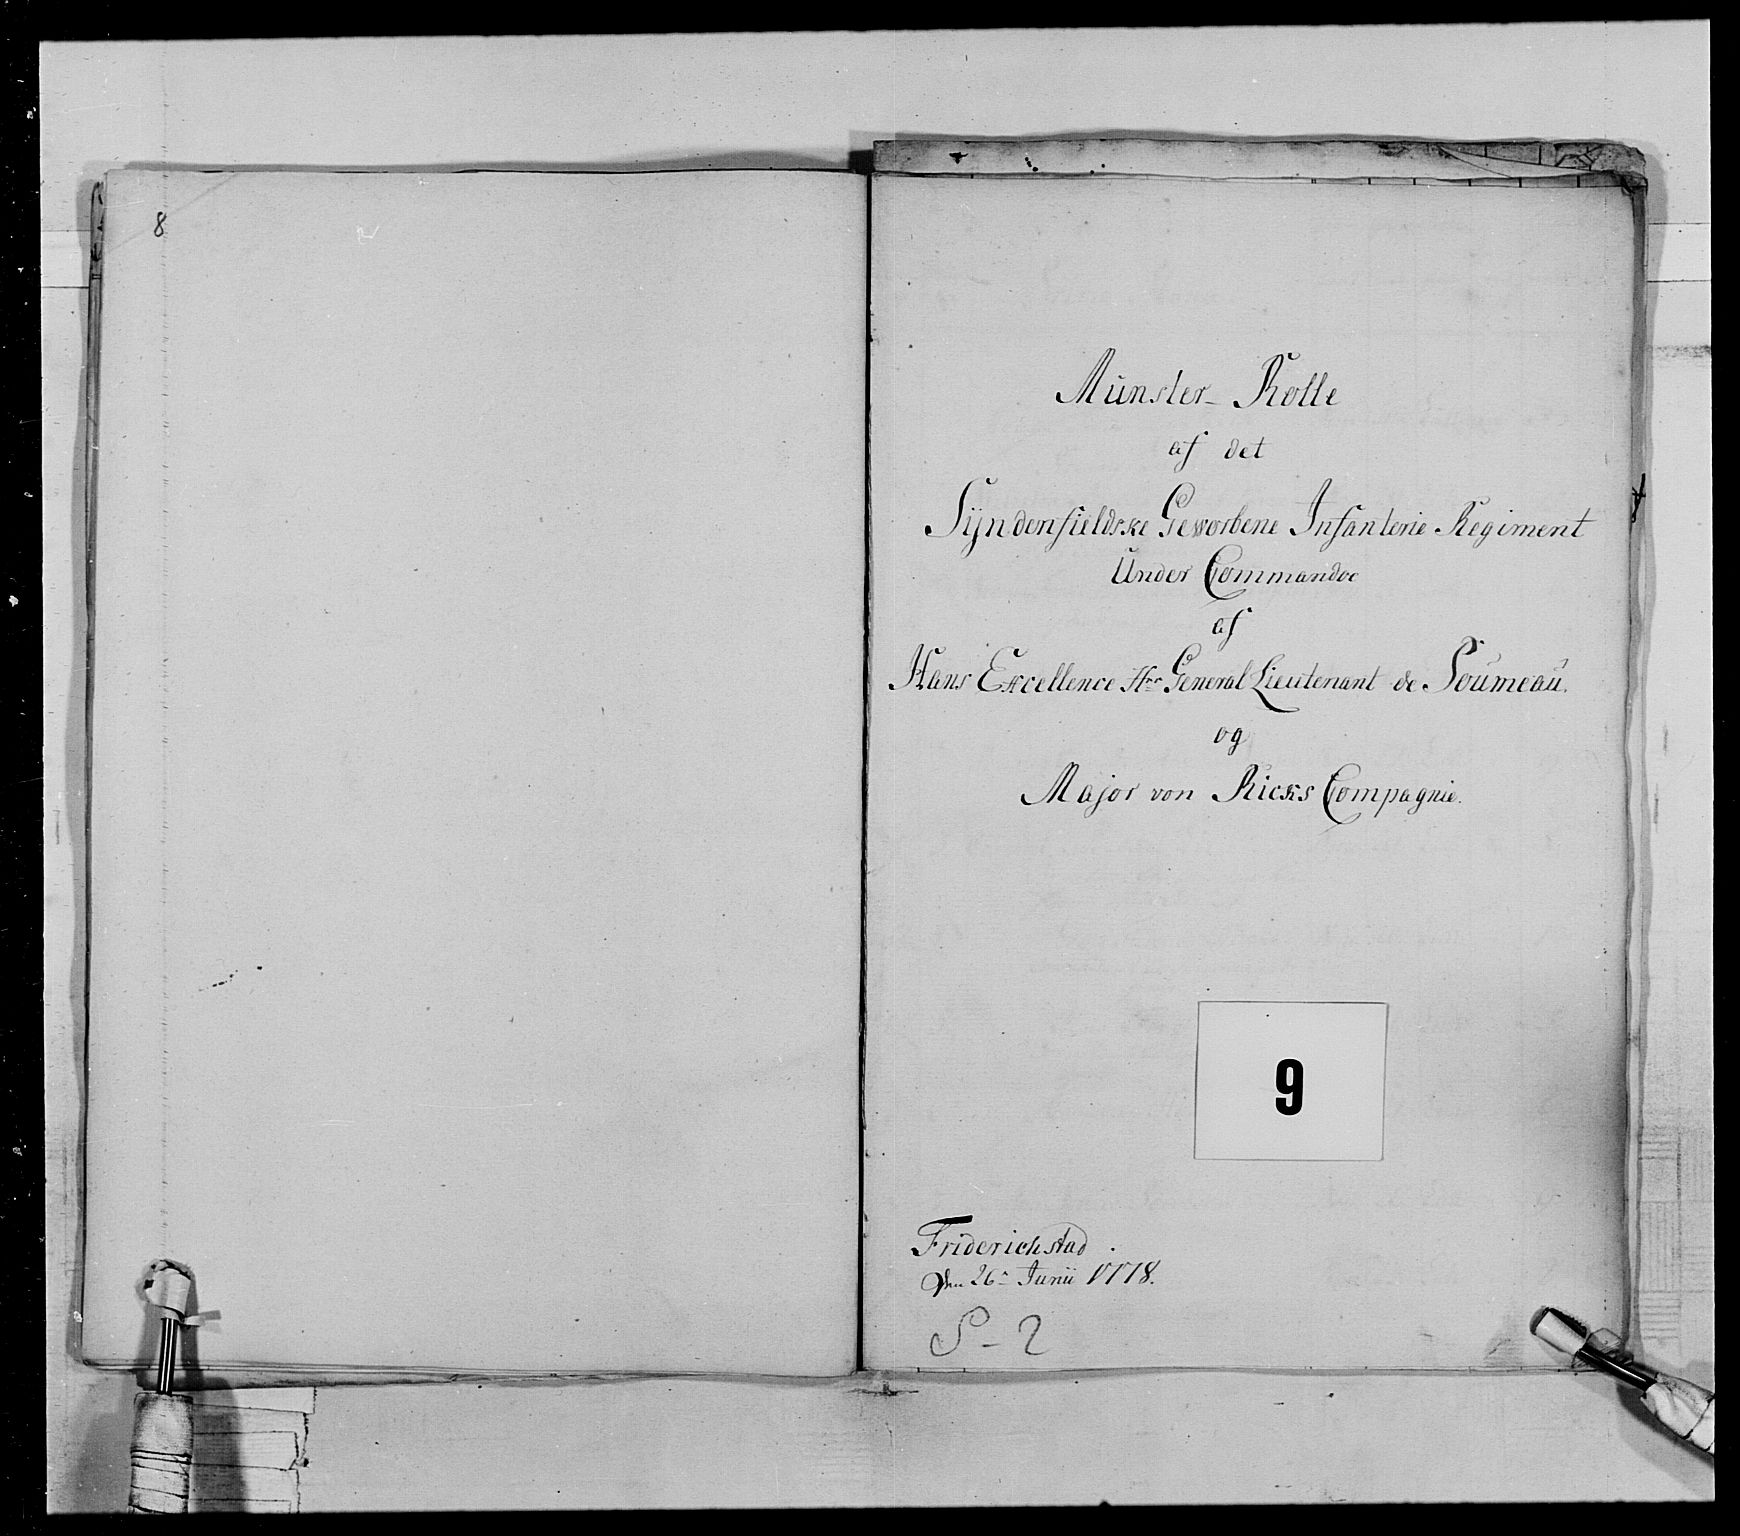 8
Münster-Rolle
af det
Syndenfieldske Geworbene Infanterie Regiment
Under Commandoe
af
Hans Excellence Hrr General Lieutenant de Soumeaŭ.
og
Major von Ricks Compagnie.
9
Friderichstad.
Den 26n Junii 1778.
S-2